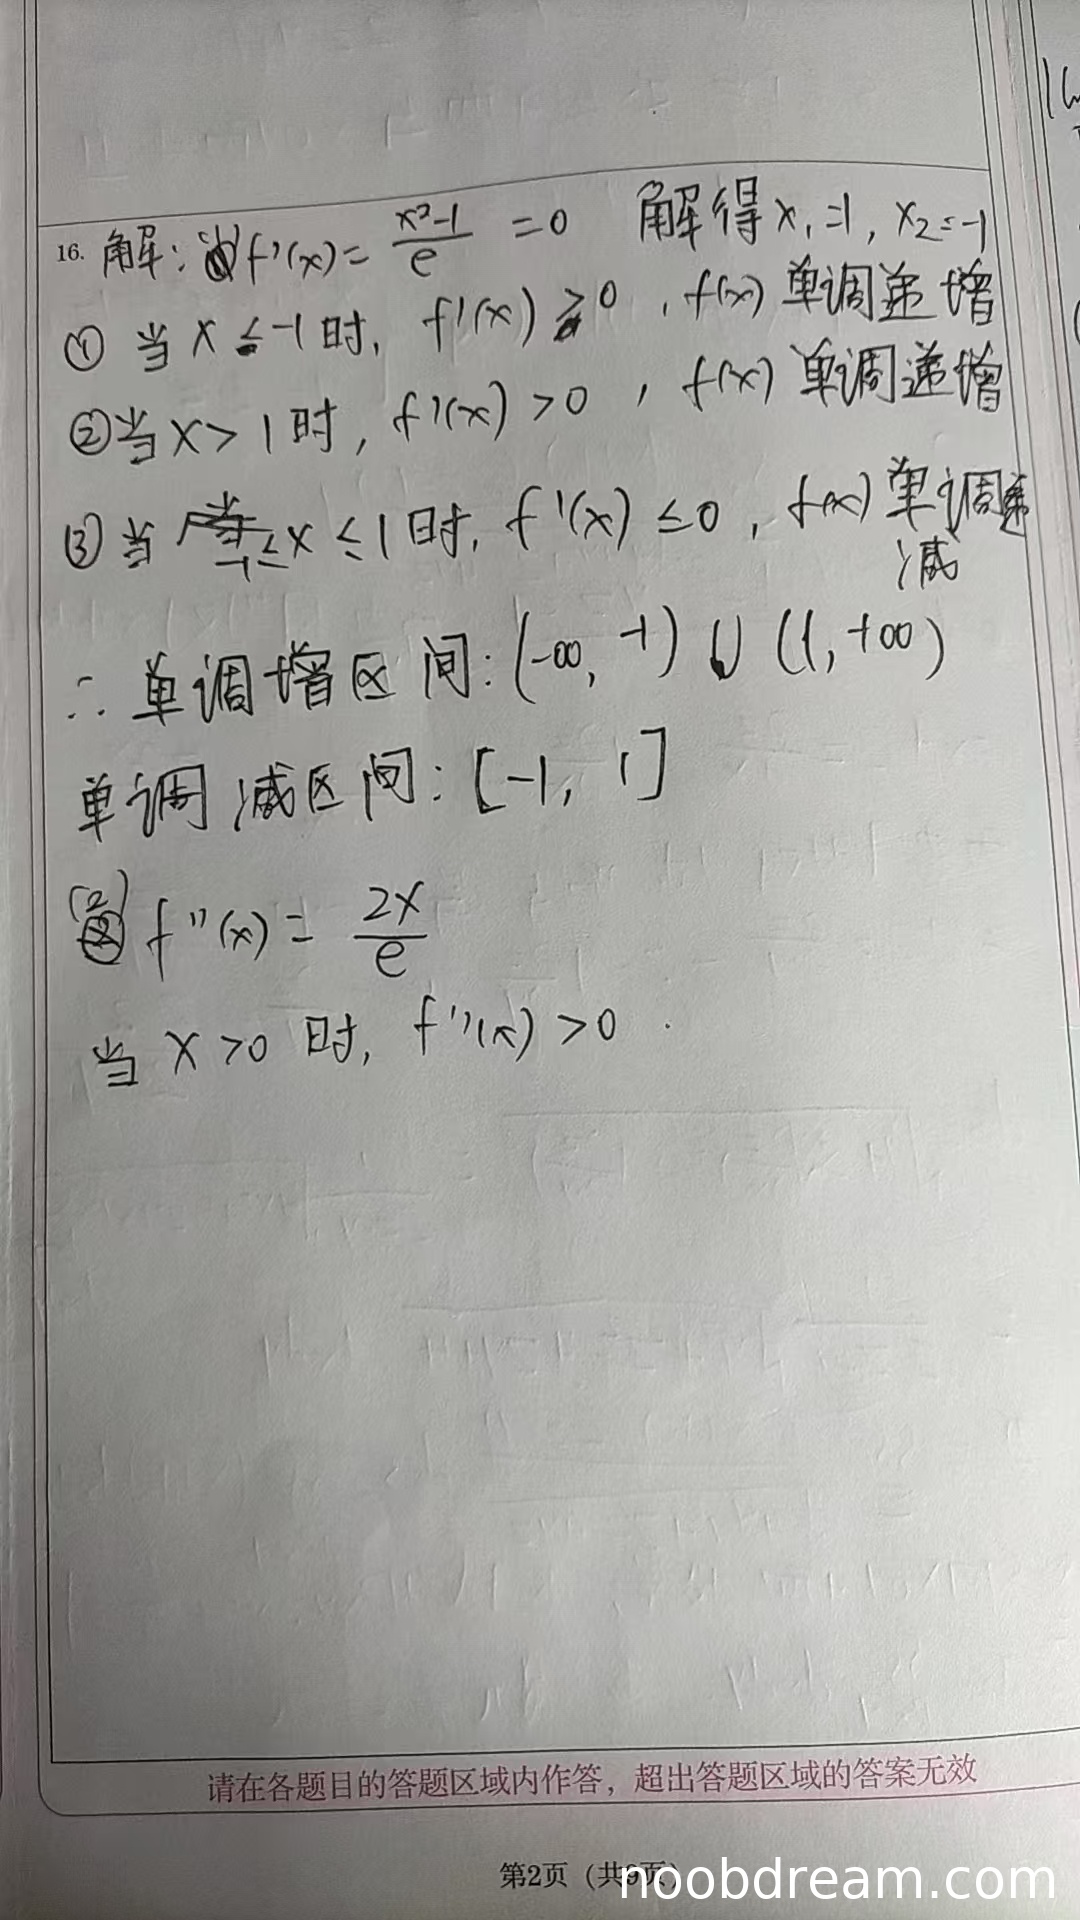 16. 解: (1) f'(x) = \frac{x²-1}{e} = 0 解得 x₁=1, x₂=-1
① 当 x ≤ -1 时, f'(x) ≥ 0 , f(x) 单调递增
② 当 x > 1 时, f'(x) > 0 , f(x) 单调递增
③ 当 -1 ≤ x ≤ 1 时, f'(x) ≤ 0 , f(x) 单调递
减
∴ 单调增区间: (-∞, -1) ∪ (1, +∞)
单调减区间: [-1, 1]
(2) f''(x) = \frac{2x}{e}
当 x > 0 时, f''(x) > 0 .
请在各题目的答题区域内作答，超出答题区域的答案无效
第2页（共9页）
noobdream.com